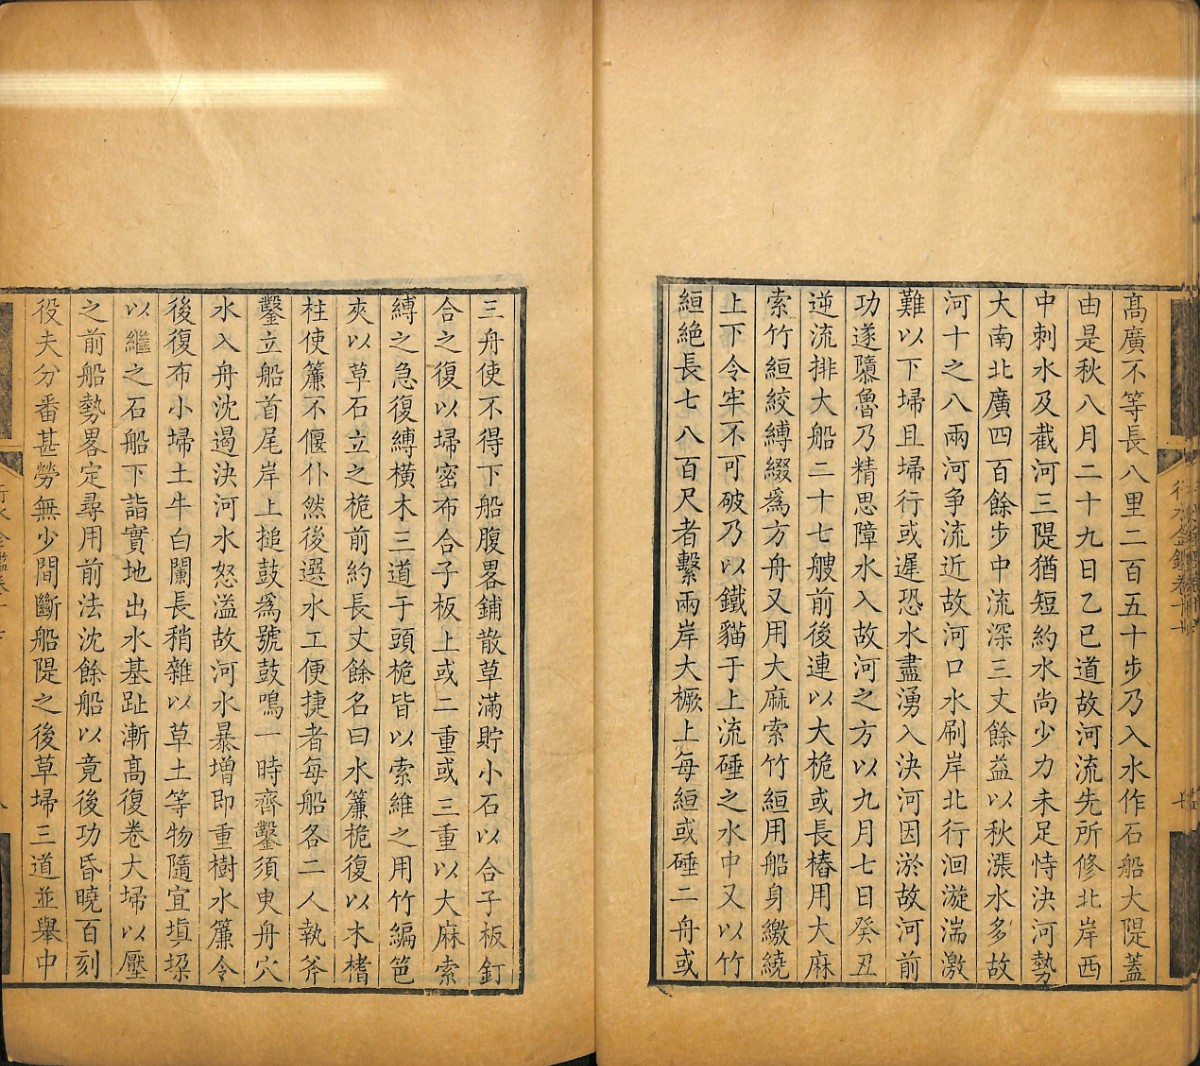 髙廣不等長八里二百五十步乃入水作石船大隄蓋
由是秋八月二十九日乙巳道故河流先所修北岸西
中刺水及截河三隄猶短約水尚少力未足恃決河勢
大南北廣四百餘步中流深三丈餘益以秋漲水多故
河十之八兩河爭流近故河口水刷岸北行洄漩湍激
難以下埽且埽行或遲恐水盡湧入決河因淤故河前
功遂隳魯乃精思障水入故河之方以九月七日癸丑
逆流排大船二十七艘前後連以大桅或長樁用大麻
索竹絙絞縛綴爲方舟又用大麻索竹絙用船身繳繞
上下令牢不可破乃以鐵貓于上流硾之水中又以竹
絙絶長七八百尺者繫兩岸大橛上每絙或硾二舟或
三舟使不得下船腹畧鋪散草滿貯小石以合子板釘
合之復以埽密布合子板上或二重或三重以大麻索
縛之急復縛横木三道于頭桅皆以索維之用竹編笆
夾以草石立之桅前約長丈餘名曰水簾桅復以木楮
柱使簾不偃仆然後選水工便捷者每船各二人執斧
鑿立船首尾岸上搥鼓爲號鼓鳴一時齊鑿須臾舟穴
水入舟沈遏決河水怒溢故河水暴增即重樹水簾令
後復布小埽土牛白闌長稍雜以草土等物隨宜填垜
以繼之石船下詣實地出水基趾漸髙復卷大埽以壓
之前船勢畧定尋用前法沈餘船以竟後功昏曉百刻
役夫分番甚勞無少間斷船隄之後草埽三道並舉中